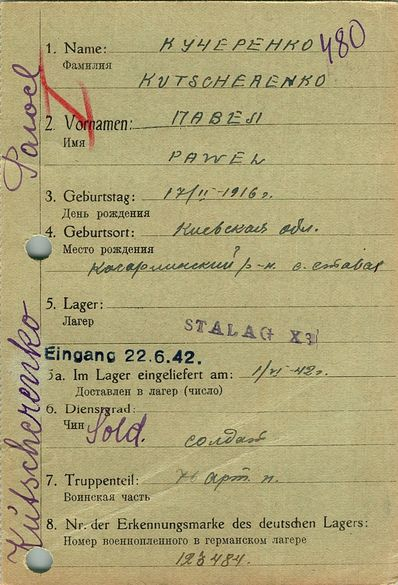 480
1. Name: КУЧЕРЕНКО
Фамилия
KUTSCHERENKO
2. Vornamen: ПАВЕЛ
Имя
PAWEL
3. Geburtstag: 17/II-1916г.
День рождения
4. Geburtsort: Киевская обл.
Место рождения
?
р-н. с.
5. Lager:
Лагер
STALAG X
Eingang 22.6.42.
5a. Im Lager eingeliefert am: 1/VI-42г.
Доставлен в лагер (число)
6. Dienstgrad:
Чин Sold.
солдат
7. Truppenteil: арт. п.
Воинская часть
8. Nr. der Erkennungsmarke des deutschen Lagers:
Номер военнопленного в германском лагере
123484.
Kutscherenko